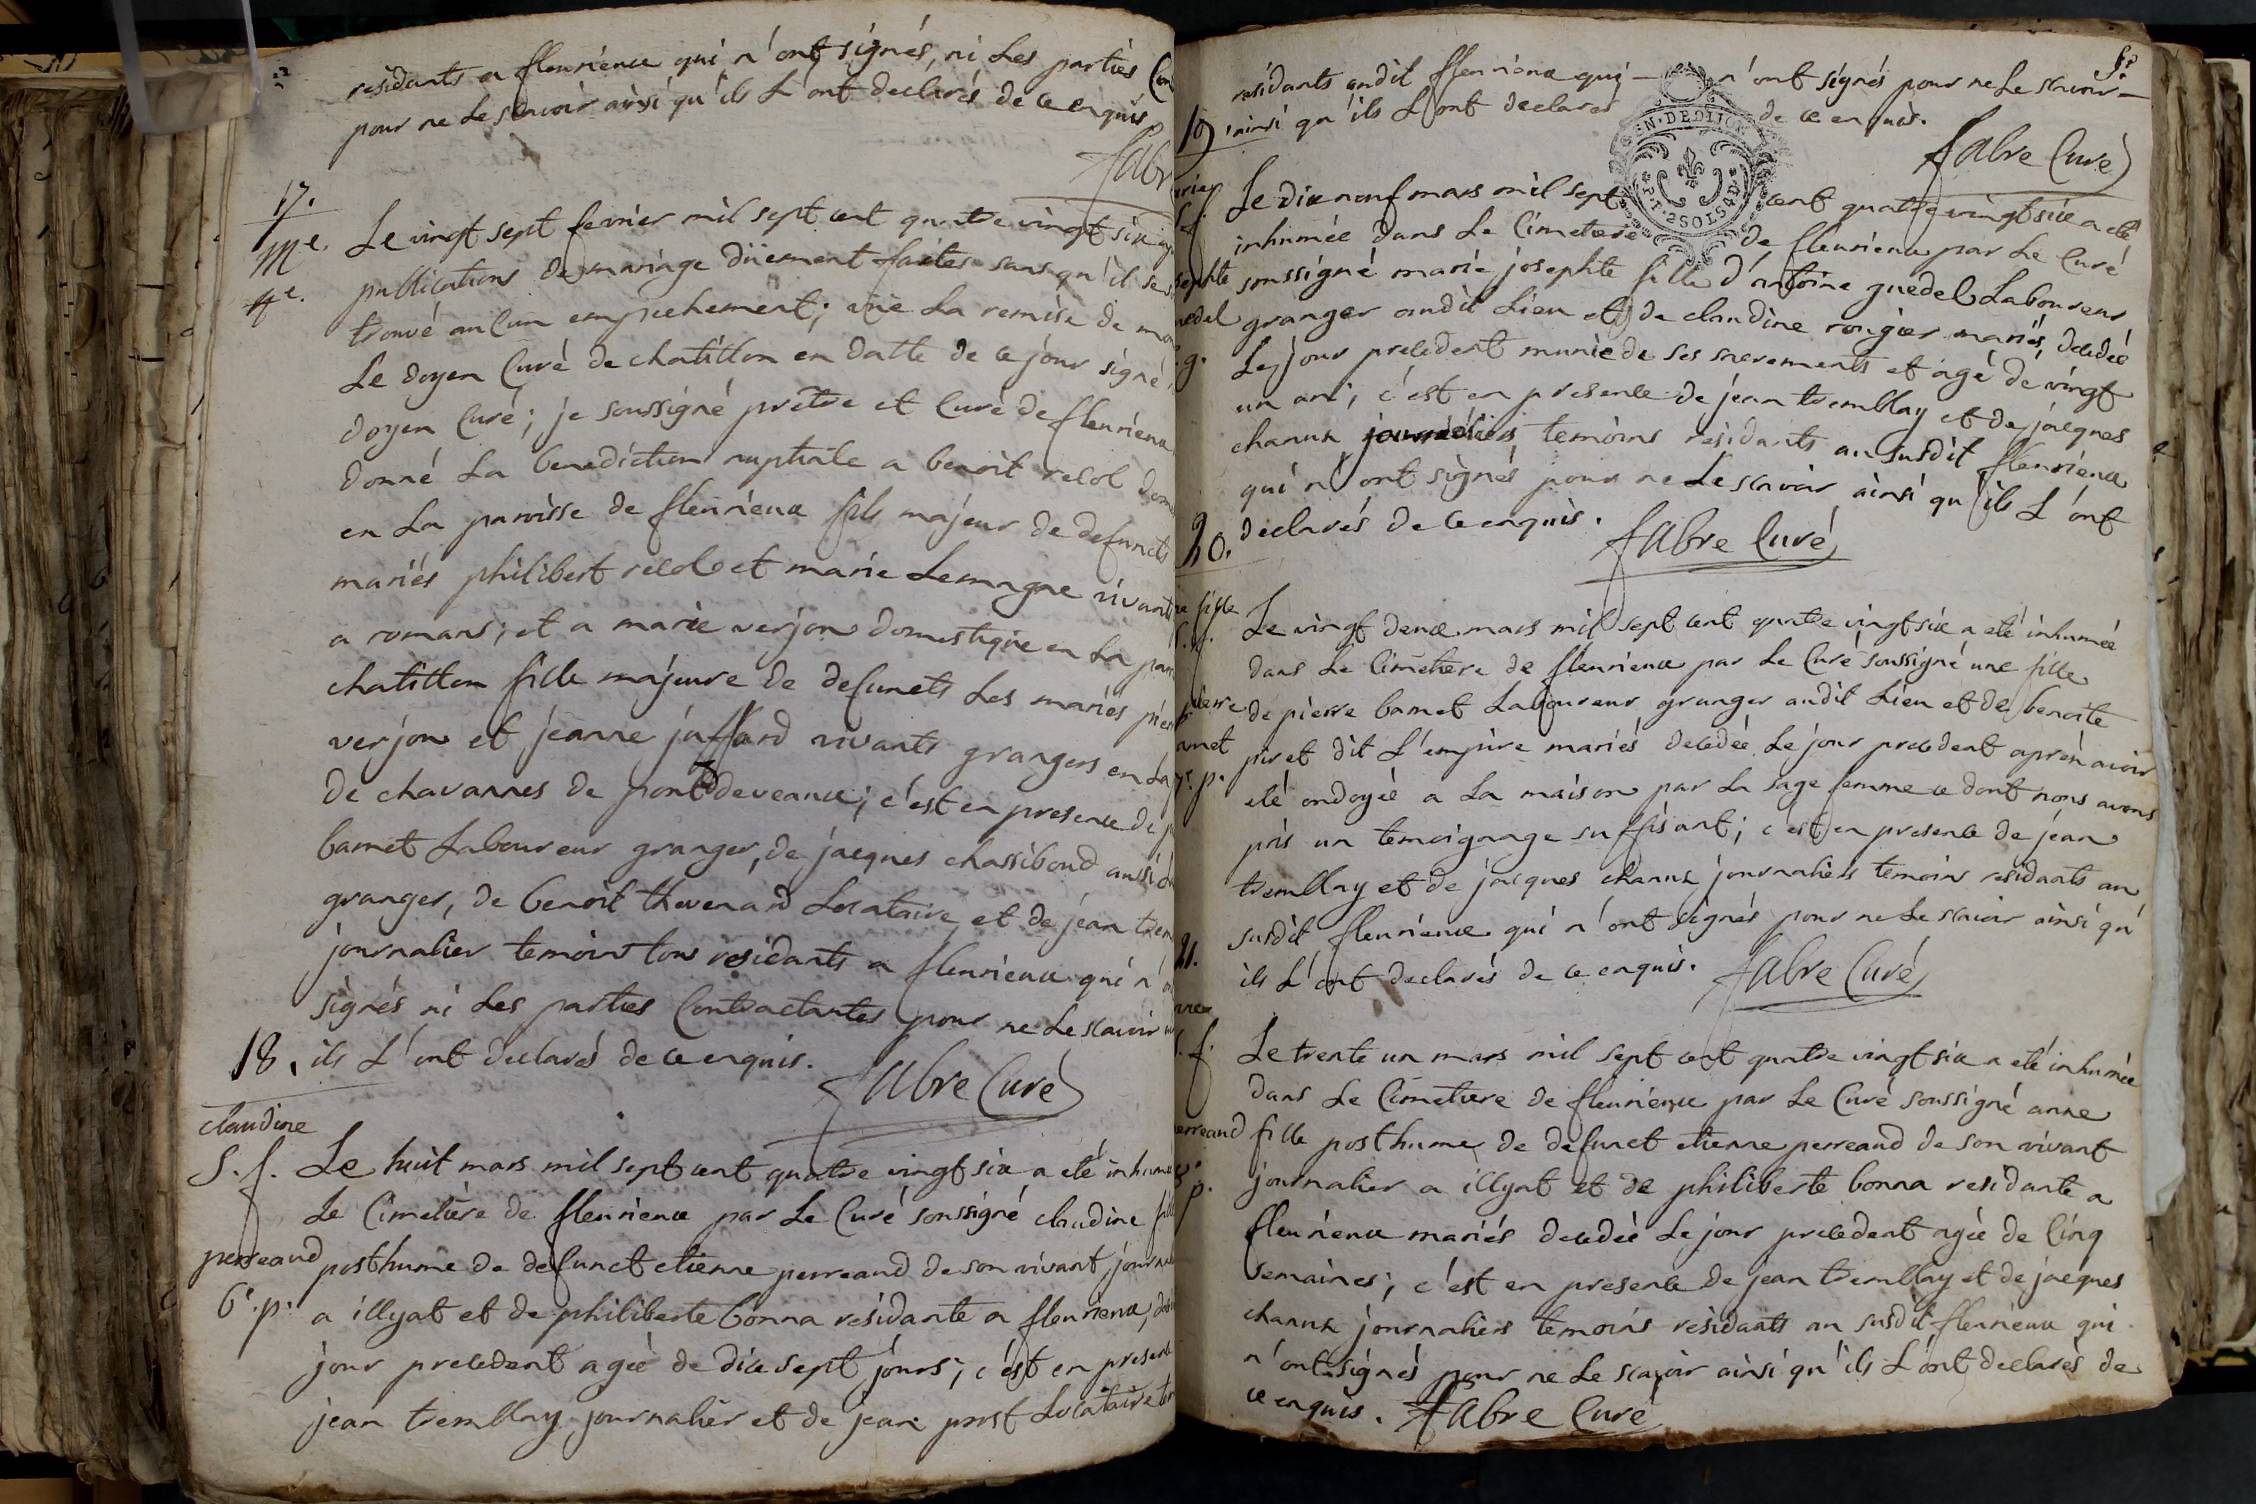 residants a fleurieux qui n'ont signés, ni Les parties
pour ne Le scavoir ainsi qu'ils L'ont declarés de ce enquis
fabr
17.
Me.
4e.
Le vingt sept fevrier mil sept cent quatre vingt six
publications de mariage düement faites sans qu'il se
trouvé aucun empechement; vüe La remise de
Le doyen Curé de chatillon en datte de ce jour signé
doyen Curé; je soussigné prêtre et Curé de fleurieux
donné La benediction nuptiale a benoit recol
en La paroisse de fleurieux fils majeur de defuncts
mariés philibert recol et marie Lemagne vivant
a romans; et a marie verjon domestique en La
chatillon fille majeure de defuncts Les mariés
verjon et jeanne juffard vivants grangers en La
de chavannes de pont deveaux; c'est en presence de
bamet Laboureur granger, de jacques chassiboud aussi
granger, de benoit thevenard Locataire et de jean
journalier temoins tous residants a fleurieux qui n'
signés ni Les parties Contractantes pour ne Le scavoir
ils L'ont declarés de ce enquis.
fabre Curé
18.
claudine
S. f.
perreaud
6e. p.
Le huit mars mil sept cent quatre vingt six a eté
Le Cimetière de fleurieux par Le Curé soussigné claudine
posthume de defunct etienne perreaud de son vivant
a illyat et de philiberte bonna residante a fleurieux,
jour precedent agée de dix sept jours; c'est en presence
jean tremblay journalier et de jean prost Locataire
residants audit fleurieux qui n'ont signés pour ne Le scavoir
ainsi qu'ils L'ont declarés de ce enquis.
fabre Curé
GEN. DE DIJON
2 SOLS 4 D
19
Le dix neuf mars mil sept cent quatre vingt six a eté
inhumée dans Le Cimetiere de fleurieux par Le Curé
soussigné marie josephte fille d'antoine guedel Laboureur
granger audit Lieu et de claudine rongier mariés, decedée
Le jour precedent munie de ses sacrements et agé de vingt
un an; c'est en presence de jean tremblay et de jacques
chanux journaliers temoins residants au susdit fleurieux
qui n'ont signés pour ne Le scavoir ainsi qu'ils L'ont
declarés de ce enquis.
fabre Curé
20.
fille
Le vingt deux mars mil sept cent quatre vingt six a eté inhumée
dans Le Cimetiere de fleurieux par Le Curé soussigné une fille
de pierre bamet Laboureur granger audit Lieu et de benoite
piret dit L'empire mariés decedée Le jour precedent aprés avoir
eté ondoyée a La maison par La sage femme ce dont nous avons
pris un temoignage suffisant; c'est en presence de jean
tremblay et de jacques chanux journaliers temoins residants au
susdit fleurieux qui n'ont signés pour ne Le scavoir ainsi qu'
ils L'ont declarés de ce enquis.
fabre Curé
21.
Le trente un mars mil sept cent quatre vingt six a eté inhumée
dans Le Cimetiere de fleurieux par Le Curé soussigné anne
fille posthume de defunct etienne perreaud de son vivant
journalier a illyat et de philiberte bonna residante a
fleurieux mariés decedée Le jour precedent agée de Cinq
semaines; c'est en presence de jean tremblay et de jacques
chanux journaliers temoins residants au susdit fleurieux qui
n'ont signés pour ne Le scavoir ainsi qu'ils L'ont declarés de
ce enquis. fabre Curé